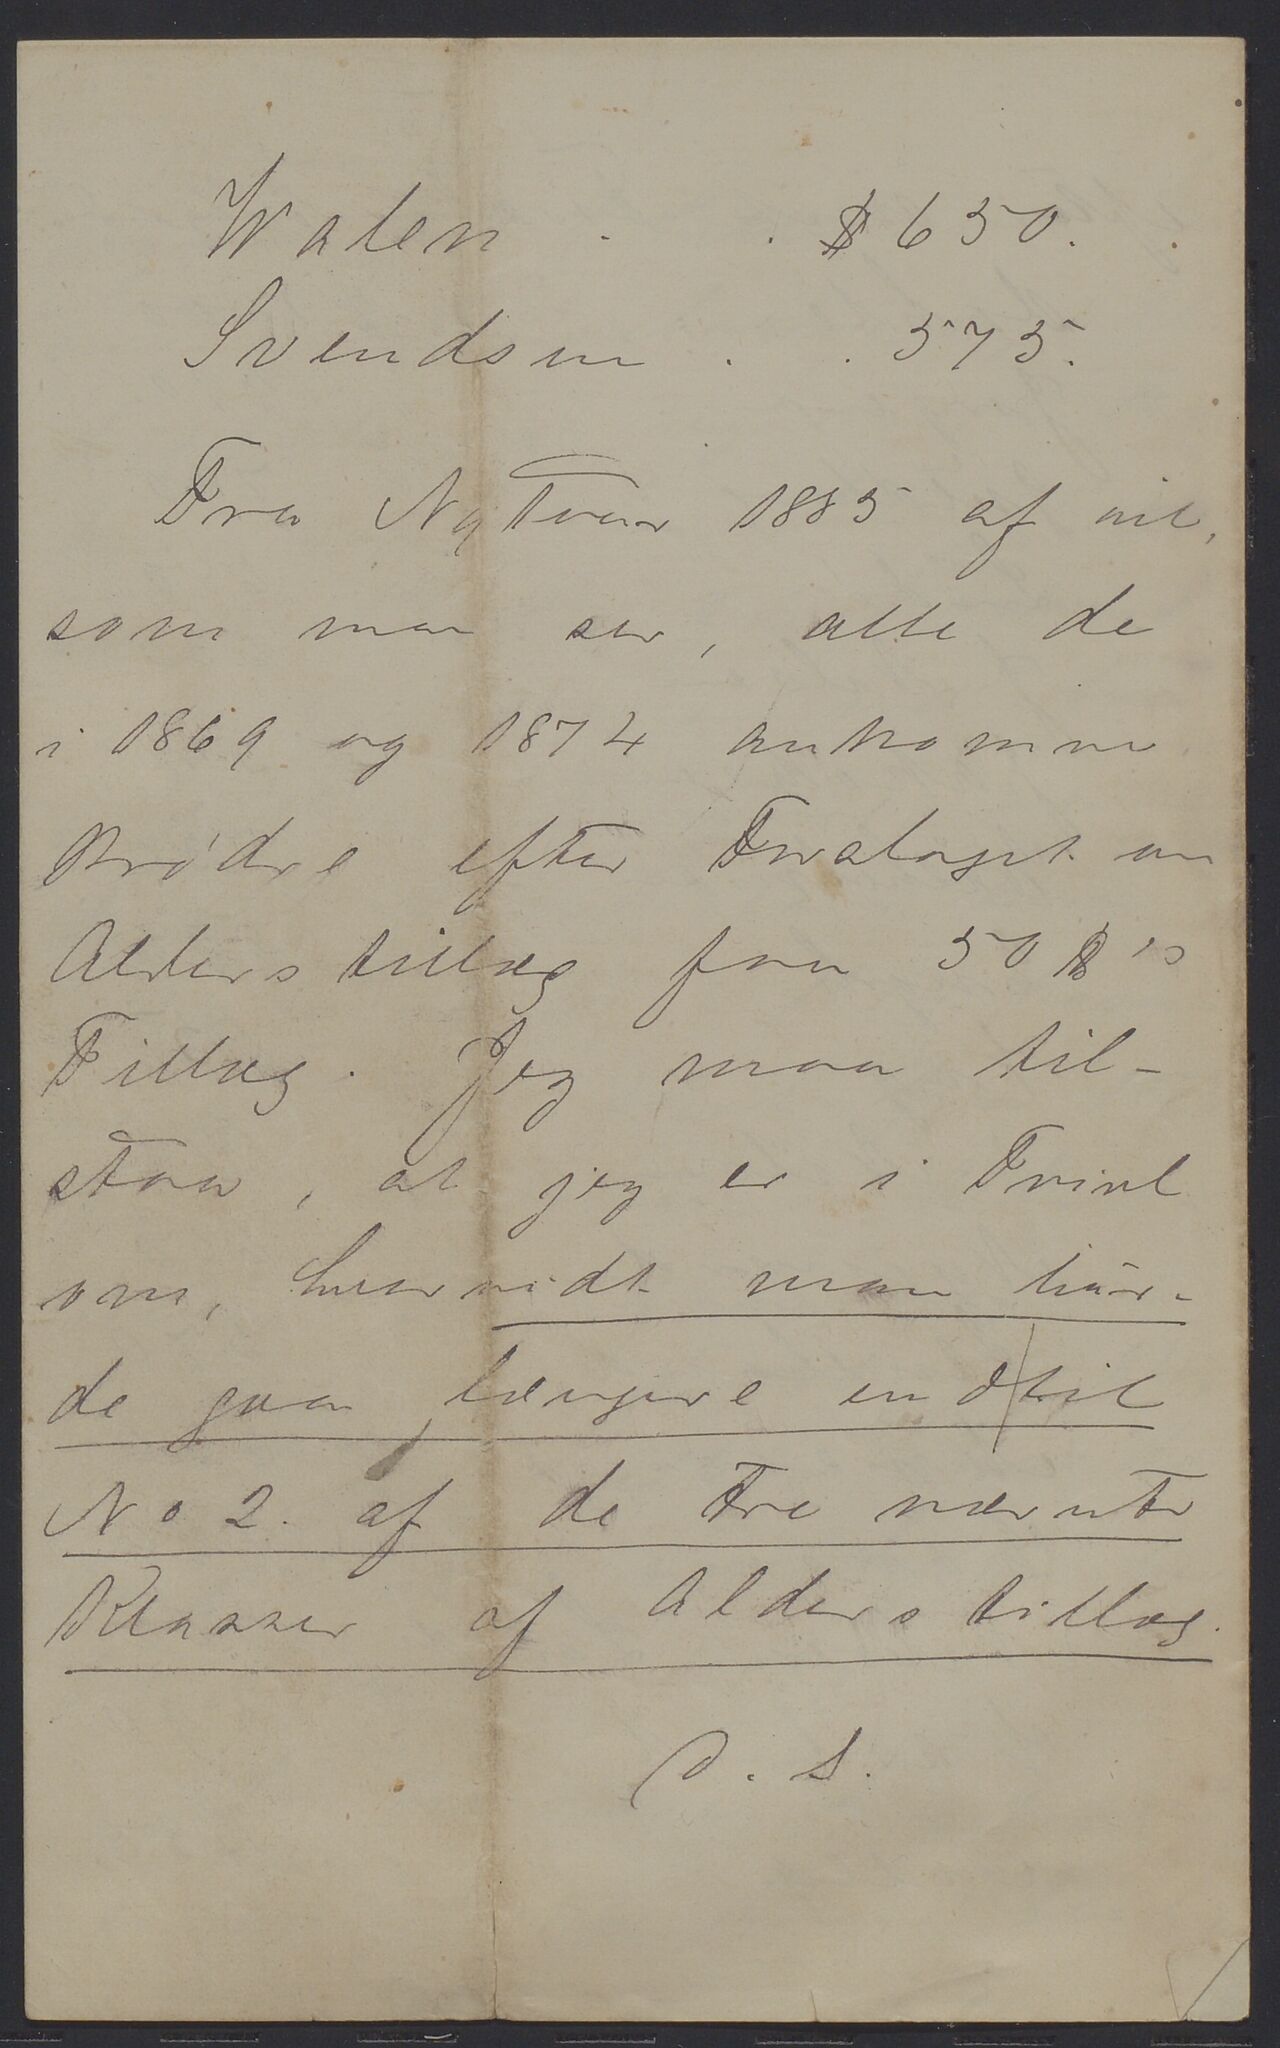 Walen . . $ 650.
Svendsen . . 575.
Fra Nytaar 1885 af vil,
som man ser, alle de
i 1869 og 1874 ankomne
Brødre efter Forslaget om
Alderstillæg faa 50 $'s
Tillæg. Jeg maa til-
staa, at jeg er i Tvivl
om, hvorvidt man bur-
de gaa længere end til
No 2. af de tre nævnte
Klasser af Alderstillæg.
D. S.